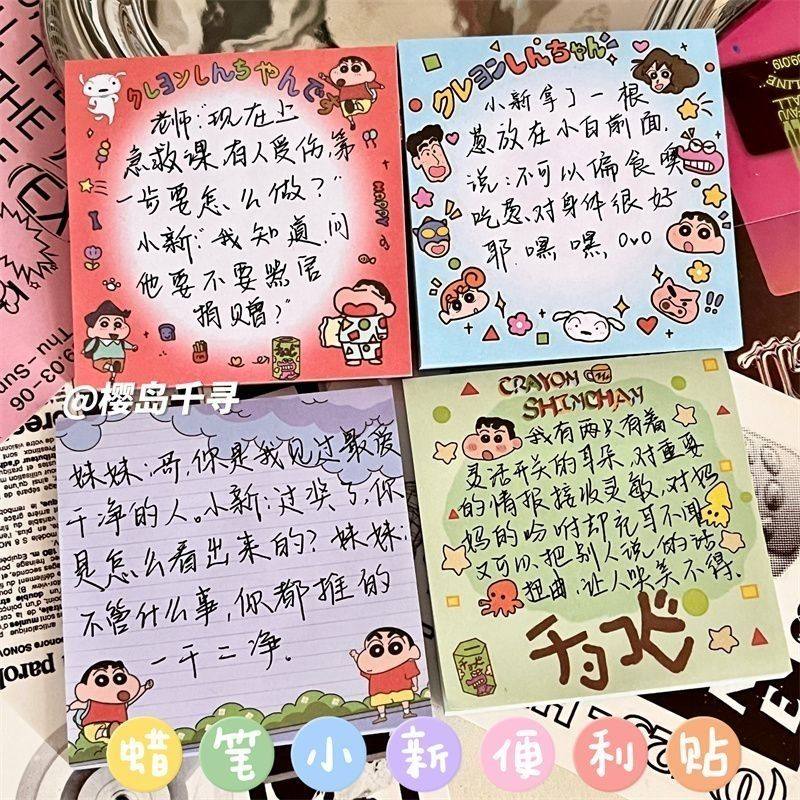 クレヨンしんちゃん
老师:"现在上
急救课,有人受伤,第
一步要怎么做?"
小新:"我知道,问
他要不要器官
捐赠?"
HAPPY
クレヨンしんちゃん
小新拿了一根
葱放在小白前面,
说:不可以偏食噢
吃葱对身件很好
耶.嘿嘿,OvO
@樱岛千寻
妹妹:哥,你是我见过最爱
干净的人。小新:过奖了,你
是怎么看出来的?妹妹:
不管什么事,你都推的
一干二净.
CRAYON
SHINCHAN
我有两只有着
灵活开关的耳朵,对重要
的情报接收灵敏,对妈
妈的吩咐却充耳不闻
又可以把别人说的话
扭曲,让人哭笑不得.
チョコビ
蜡笔小新便利贴